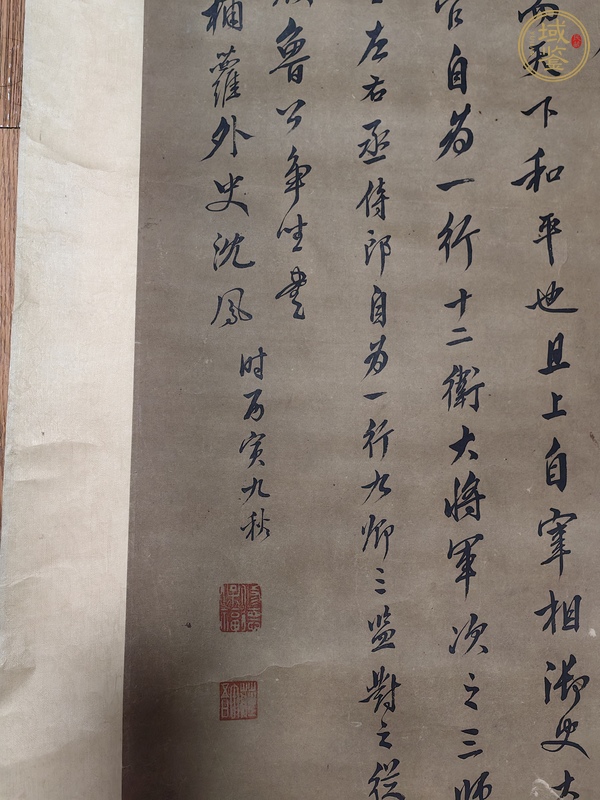 而天下和平也且上自宰相御史大
自为一行十二衛大将軍次之三師
左右丞侍郎自为一行九卿三监對之從
魯公争坐書
補蘿外史沈鳳
时丙寅九秋
域鉴